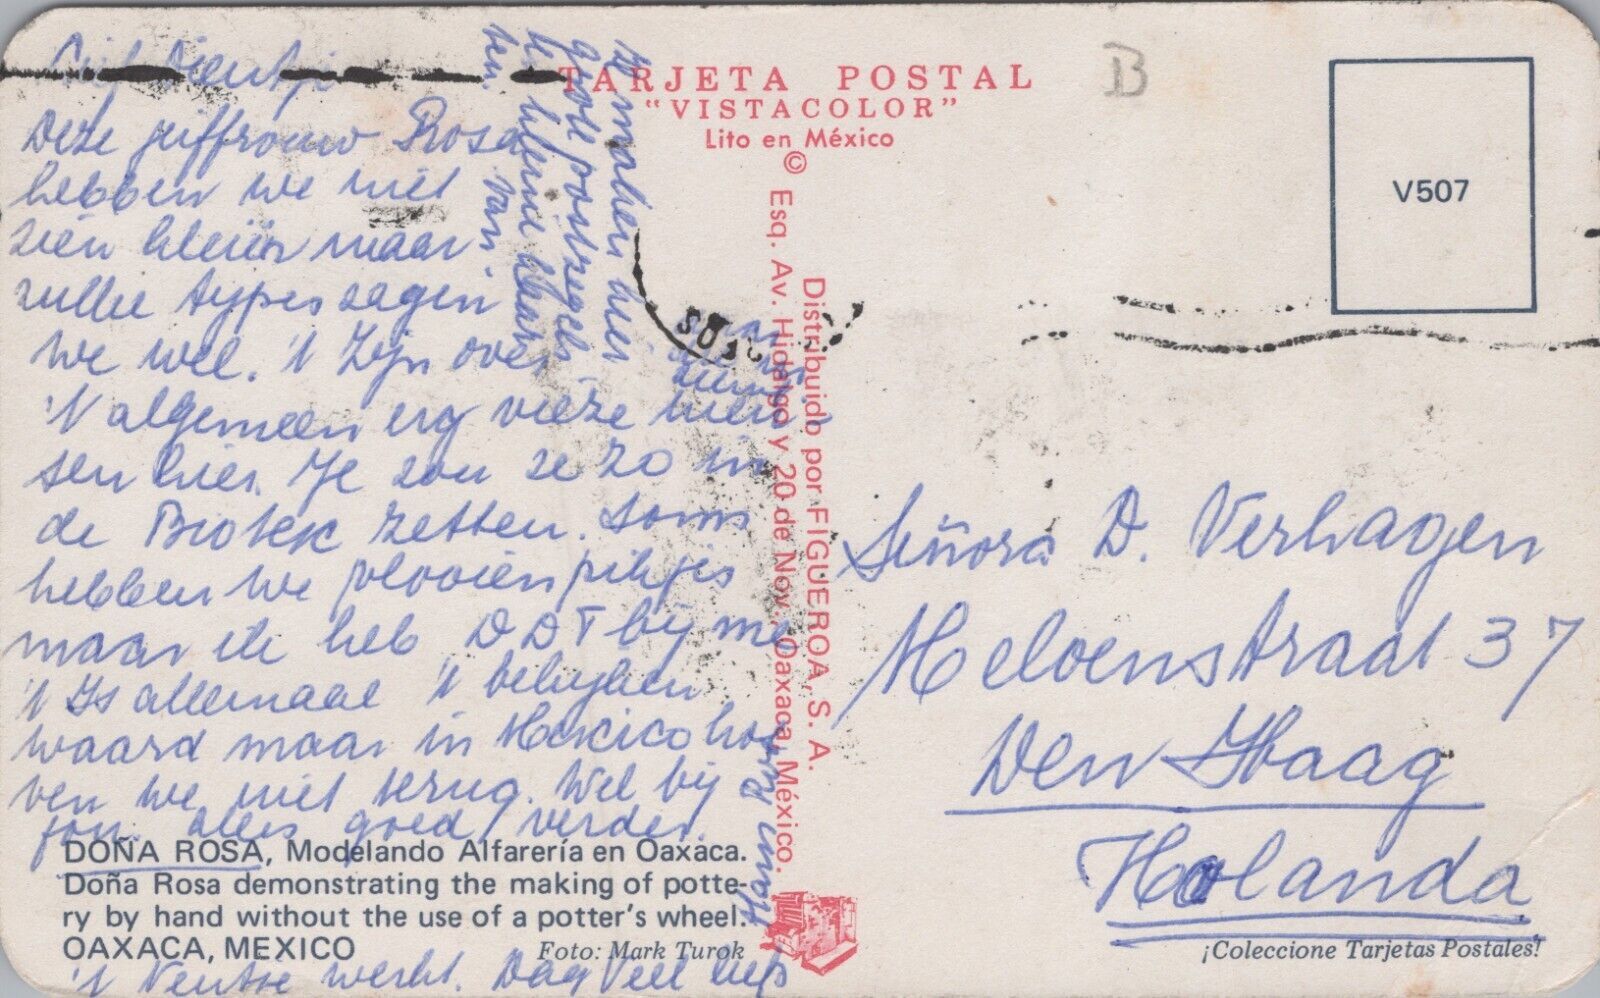 TARJETA POSTAL
"VISTACOLOR"
Lito en México
V507
Deze juffrouw Rosa
hebben we niet
zien kleiën maar
zulke types zagen
we wel. 't Zijn over
't algemeen erg vieze men
sen hier. Je zou ze zo in
de Biotex zetten. Soms
hebben we vlooien
maar ik heb DDT bij me
't Is allemaal 't bekijken
waard maar in Mexico ho
ven we niet terug. Wel bij
jou. alles goed verder.
't werkt. Dag Veel liefs
Ze maken hier
grote postzegels
te kleine kaar
ten. van
©
Esq. Av. Hidalgo y 20 de Nov., Oaxaca, México.
Distribuido por FIGUEROA, S. A.
Señora D. Verhagen
Meloenstraat 37
Den Haag
Holanda
DOÑA ROSA, Modelando Alfarería en Oaxaca.
Doña Rosa demonstrating the making of potte-
ry by hand without the use of a potter's wheel.
OAXACA, MEXICO
Foto: Mark Turok
¡Coleccione Tarjetas Postales!
B